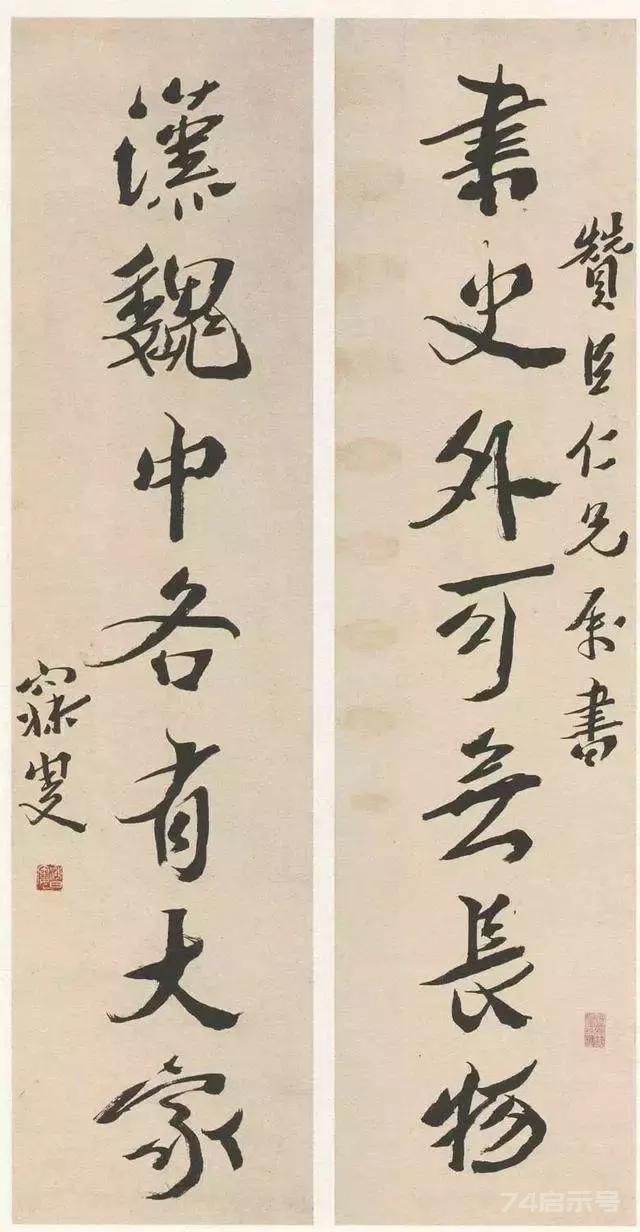 贊臣仁兄属書
書史外可無長物
漢魏中各有大家
寐叟
74启示号